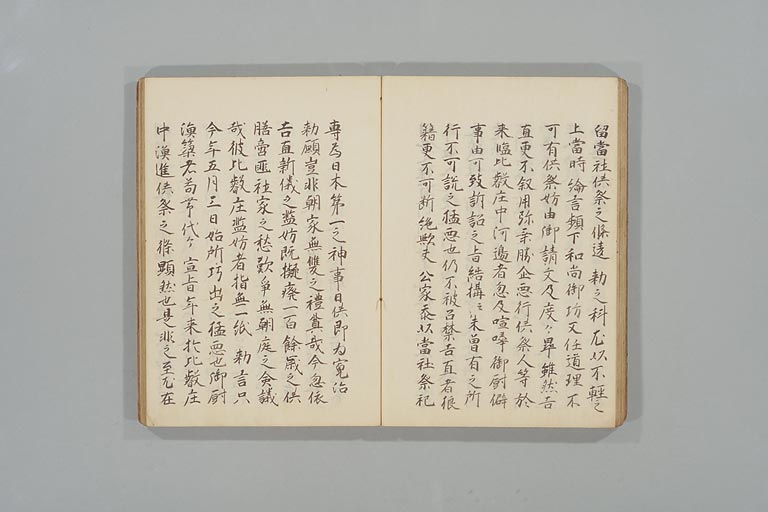 留當社供祭之條違 勅之科尤以不軽之
上當時綸言頻下和尚御坊又任道理不
可有供祭妨由御請文及度々畢雖然吉
直更不叙用弥乗勝企悪行供祭人等於
来臨比叡庄中河邊者忽及喧嘩御厨僻
事由可致訴詔之旨結構云々未曽有之所
行不可説之猛悪也仍不被召禁吉直者狼
籍更不可断絶歟夫 公家忝以當社祭祀
専為日本第一之神事日供即為寛治
勅願豈非朝家無雙之禮奠哉今忽依
吉直新儀之監妨既擬癈一百餘歳之供
膳啻匪社家之愁歎争無朝庭之僉議
哉彼比叡庄監妨者指無一紙 勅言只
今年五月三日始所巧出之猛悪也御厨
漁簗者苟帯代々 宣旨年来於比叡庄
中漁進供祭之條顕然也是非之至尤在